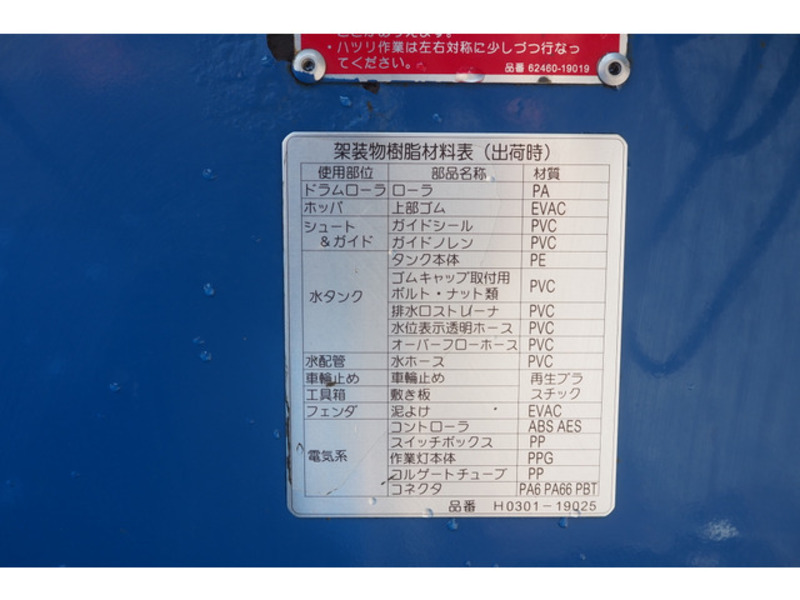 ・ハツリ作業は左右対称に少しづつ行なっ
てください。
品番 62460-19019
架装物樹脂材料表（出荷時）
使用部位 部品名称 材質
ドラムローラ ローラ PA
ホッパ 上部ゴム EVAC
シュート ガイドシール PVC
&ガイド ガイドノレン PVC
水タンク タンク本体 PE
ゴムキャップ取付用
ボルト・ナット類 PVC
排水口ストレーナ PVC
水位表示透明ホース PVC
オーバーフローホース PVC
水配管 水ホース PVC
車輪止め 車輪止め 再生プラ
工具箱 敷き板 スチック
フェンダ 泥よけ EVAC
電気系 コントローラ ABS AES
スイッチボックス PP
作業灯本体 PPG
コルゲートチューブ PP
コネクタ PA6 PA66 PBT
品番 H0301-19025